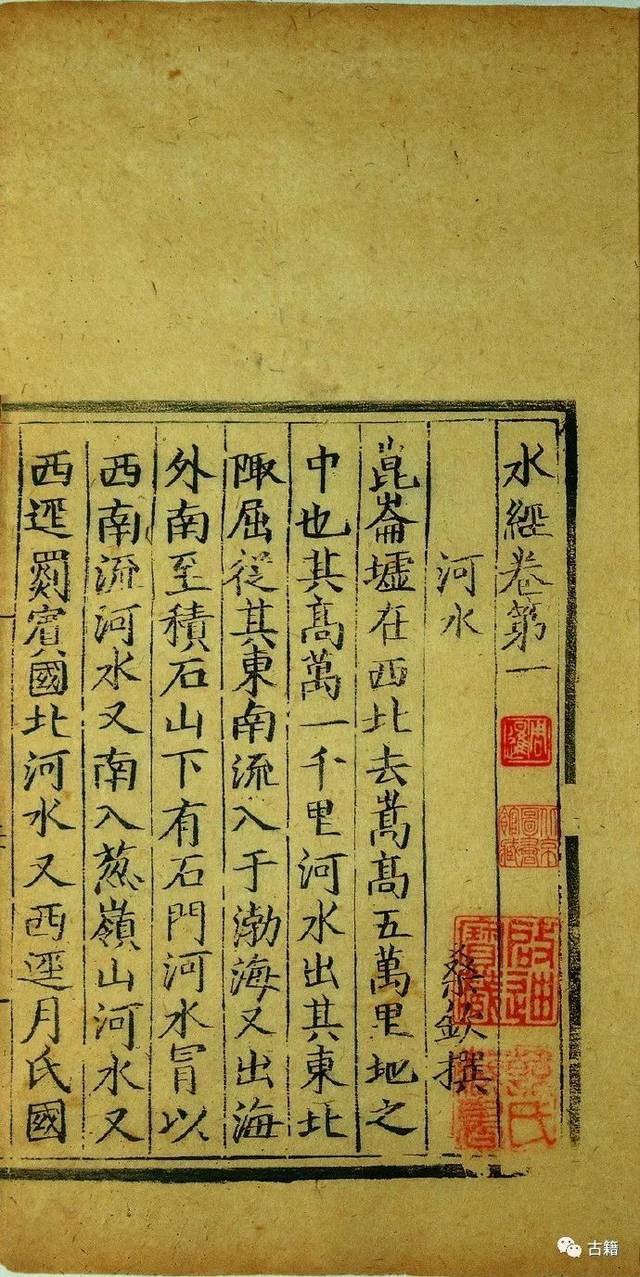 水經卷第一
河水
桑欽撰
崑崙墟在西北去嵩高五萬里地之
中也其高萬一千里河水出其東北
陬屈從其東南流入于渤海又出海
外南至積石山下有石門河水冒以
西南流河水又南入葱嶺山河水又
西逕罽賓國北河水又西逕月氏國
周暹
北京圖書館藏
古籍